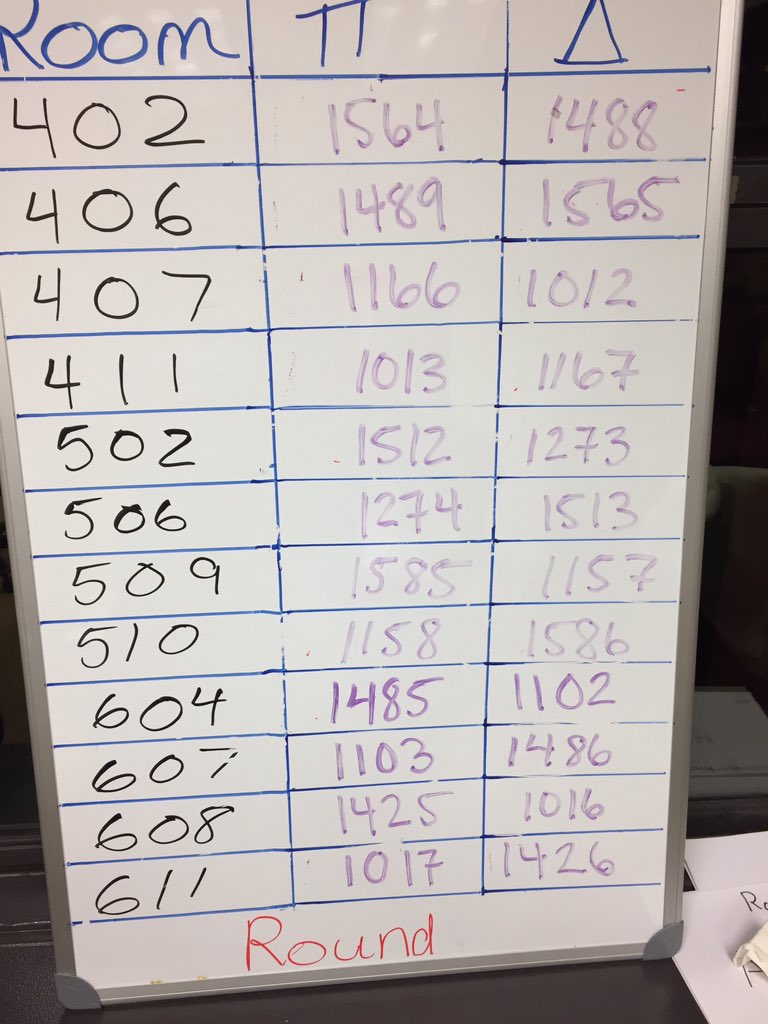 Room π Δ
402 1564 1488
406 1489 1565
407 1166 1012
411 1013 1167
502 1512 1273
506 1274 1513
509 1585 1157
510 1158 1586
604 1485 1102
607 1103 1486
608 1425 1016
611 1017 1426
Round